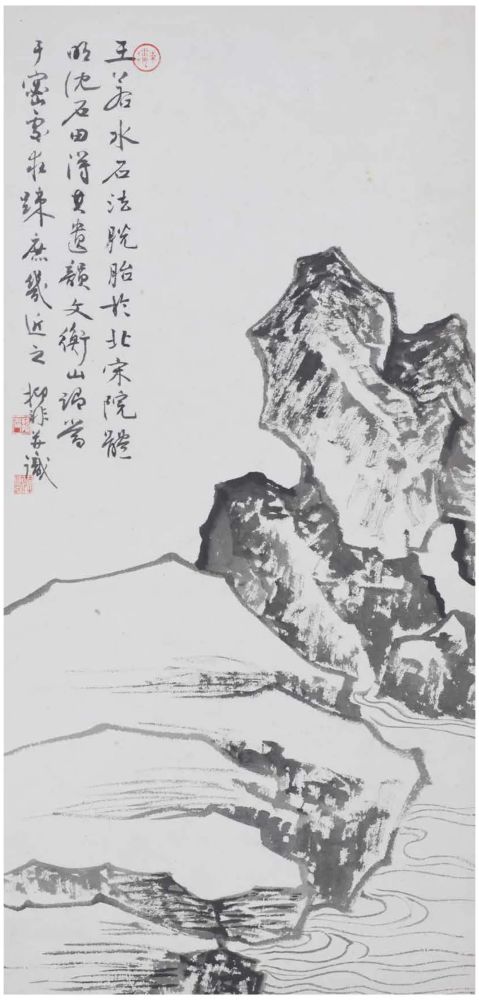 王若水石法脫胎於北宋院體
明沈石田得其遺韻文衡山謂當
于密處求疎庶幾近之 柳非并識